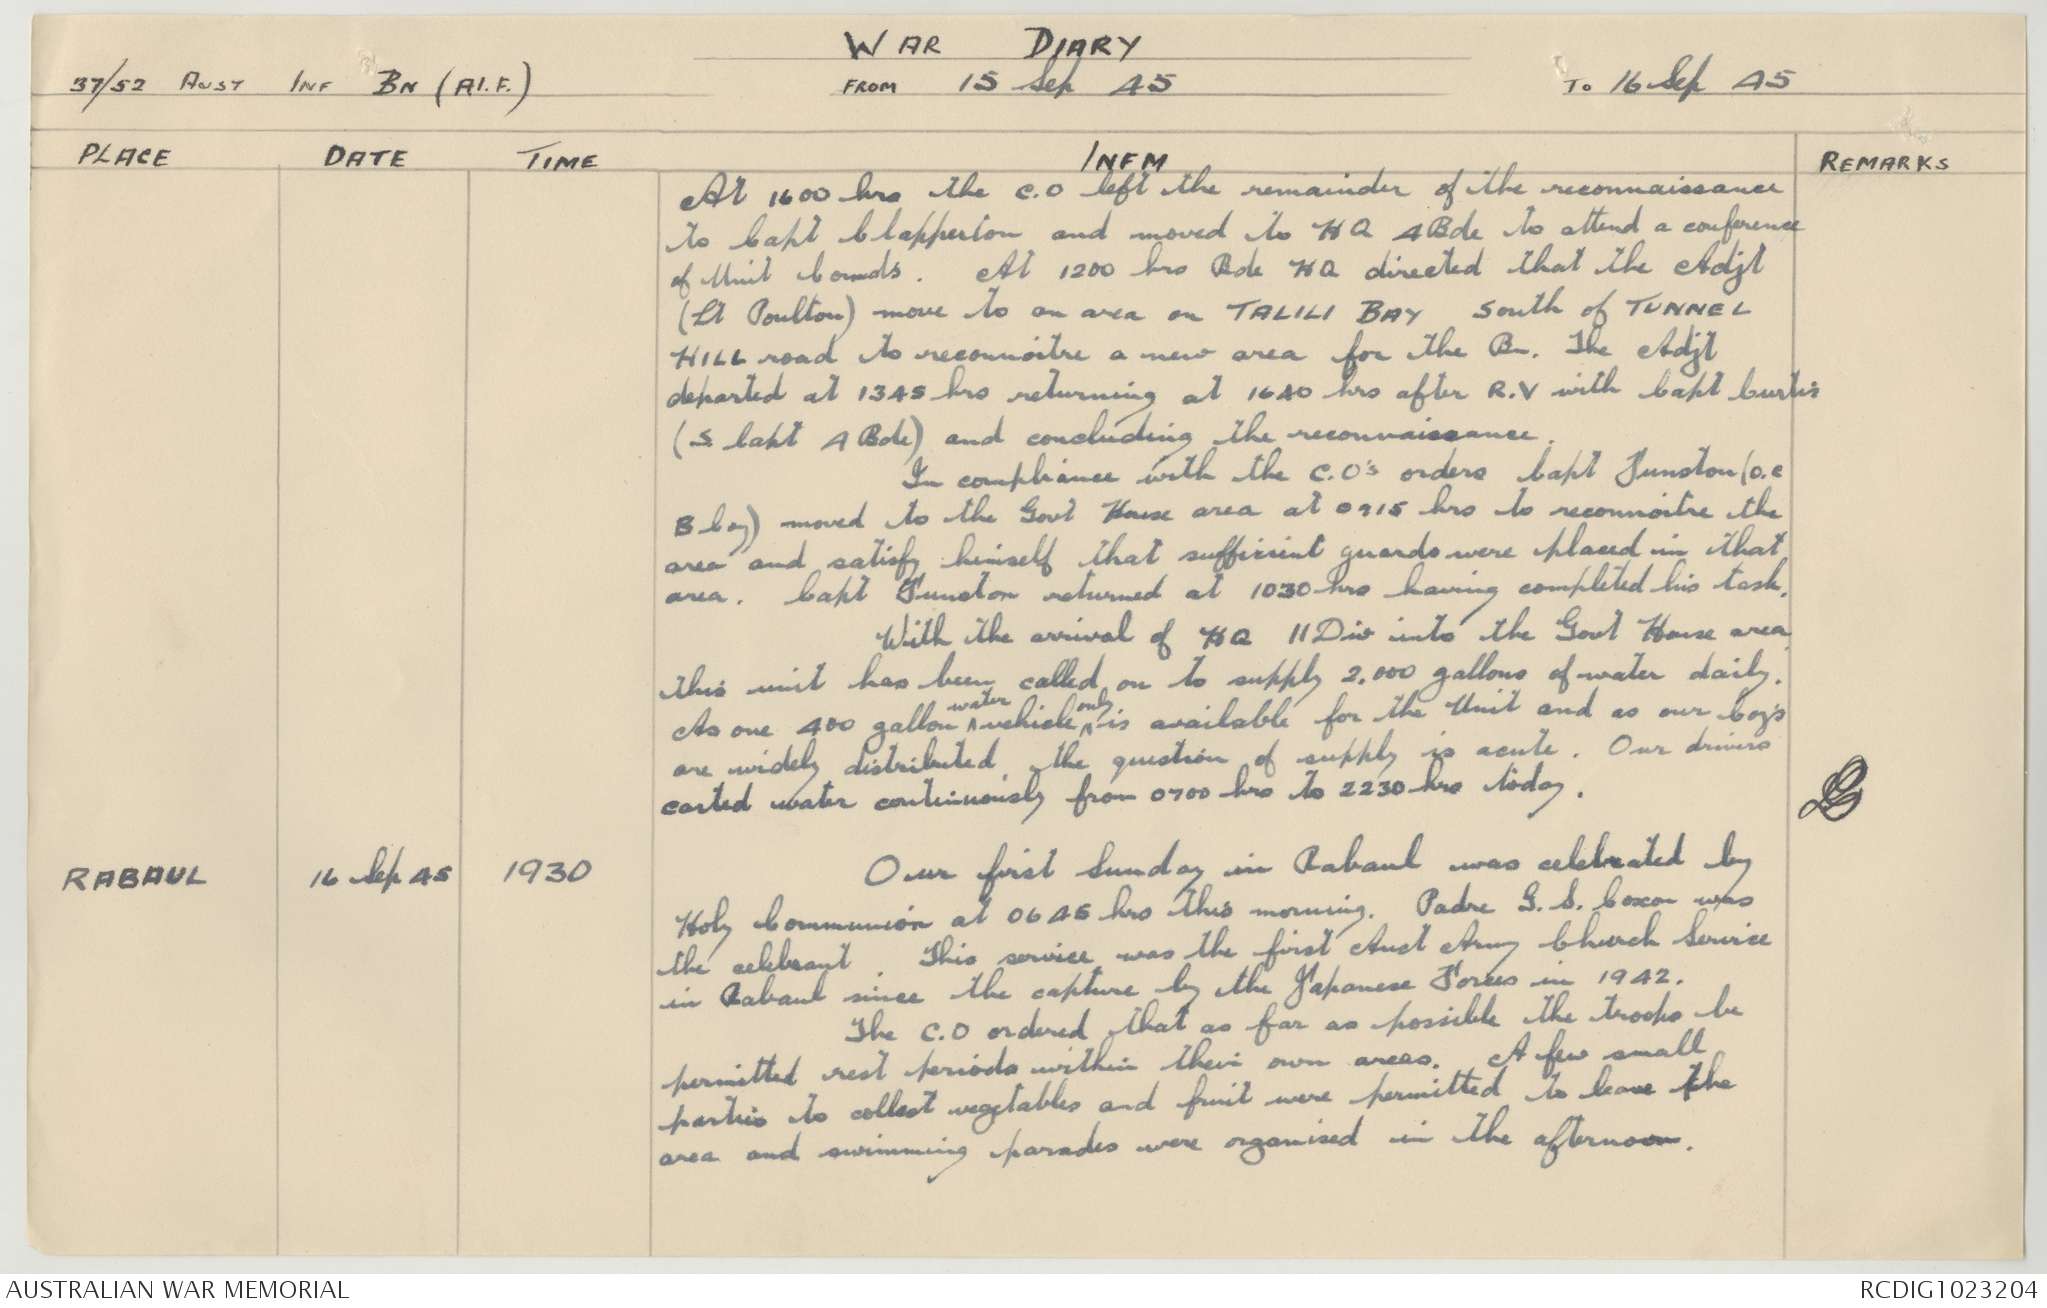 WAR DIARY
37/52 AUST INF BN (A.I.F.) FROM 15 Sep 45 TO 16 Sep 45
PLACE DATE TIME INFM REMARKS
At 1600 hrs the C.O left the remainder of the reconnaissance
to Capt Clapperton and moved to HQ 4 Bde to attend a conference
of Unit Comds. At 1200 hrs Bde HQ directed that the Adjt
(Lt Poulton) move to an area on TALILI BAY South of TUNNEL
HILL road to reconnoitre a new area for the Bn. The Adjt
departed at 1345 hrs returning at 1640 hrs after R.V with Capt Curtis
(S Capt 4 Bde) and concluding the reconnaissance.
In compliance with the C.O's orders Capt Funston (O.C
B Coy) moved to the Govt House area at 0915 hrs to reconnoitre the
area and satisfy himself that sufficient guards were placed in that
area. Capt Funston returned at 1030 hrs having completed his task.
With the arrival of HQ 11 Div into the Govt House area
this unit has been called on to supply 2,000 gallons of water daily.
As one 400 gallon water vehicle only is available for the Unit and as our Coys
are widely distributed, the question of supply is acute. Our drivers
carted water continuously from 0700 hrs to 2230 hrs today.
RABAUL 16 Sep 45 1930 Our first Sunday in Rabaul was celebrated by
Holy Communion at 0645 hrs this morning. Padre G. S. Coxon was
the celebrant. This service was the first Aust Army Church Service
in Rabaul since the capture by the Japanese Forces in 1942.
The C.O ordered that as far as possible the troops be
permitted rest periods within their own areas. A few small
parties to collect vegetables and fruit were permitted to leave the
area and swimming parades were organised in the afternoon.
AUSTRALIAN WAR MEMORIAL RCDIG1023204